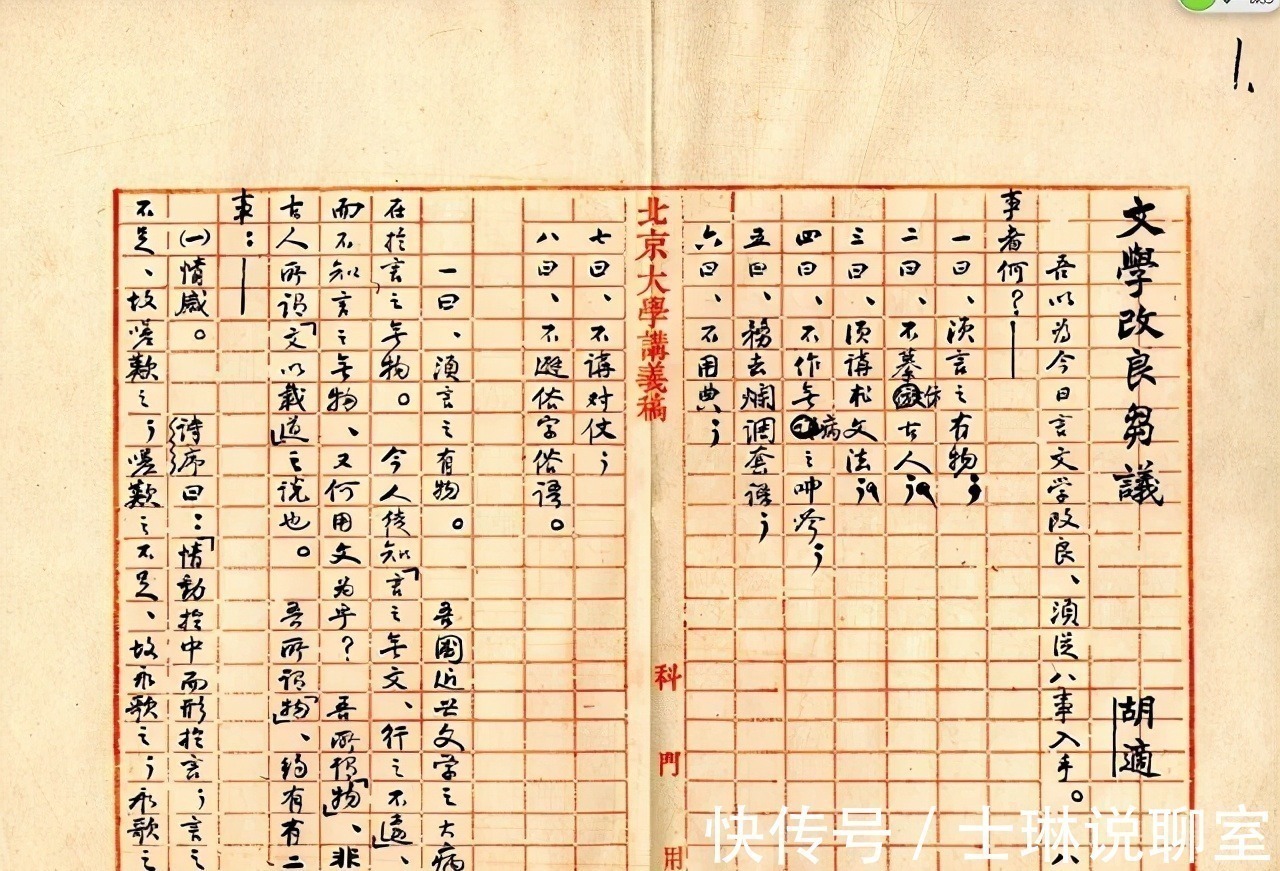 1.
文學改良芻議
胡適
吾以为今日言文学改良、須從八事入手。八
事者何？——
一曰、須言之有物；
二曰、不摹仿古人；
三曰、須講求文法；
四曰、不作无病之呻吟；
五曰、務去爛調套語；
六曰、不用典；
北京大學講義稿
科 門 用
七曰、不講对仗；
八曰、不避俗字俗語。
一曰、須言之有物。 吾國近世文学之大病、
在於言之无物。 今人徒知「言之无文、行之不遠」、
而不知言之无物、又何用文为乎？ 吾所謂「物」、非
古人所謂「文以載道」之说也。 吾所謂「物」、約有有二
事：——
㈠情感。 詩序曰：「情動於中而形於言；言之
不足、故嗟歎之；嗟歎之不足、故永歌之；永歌之
快传号 / 士琳说聊室